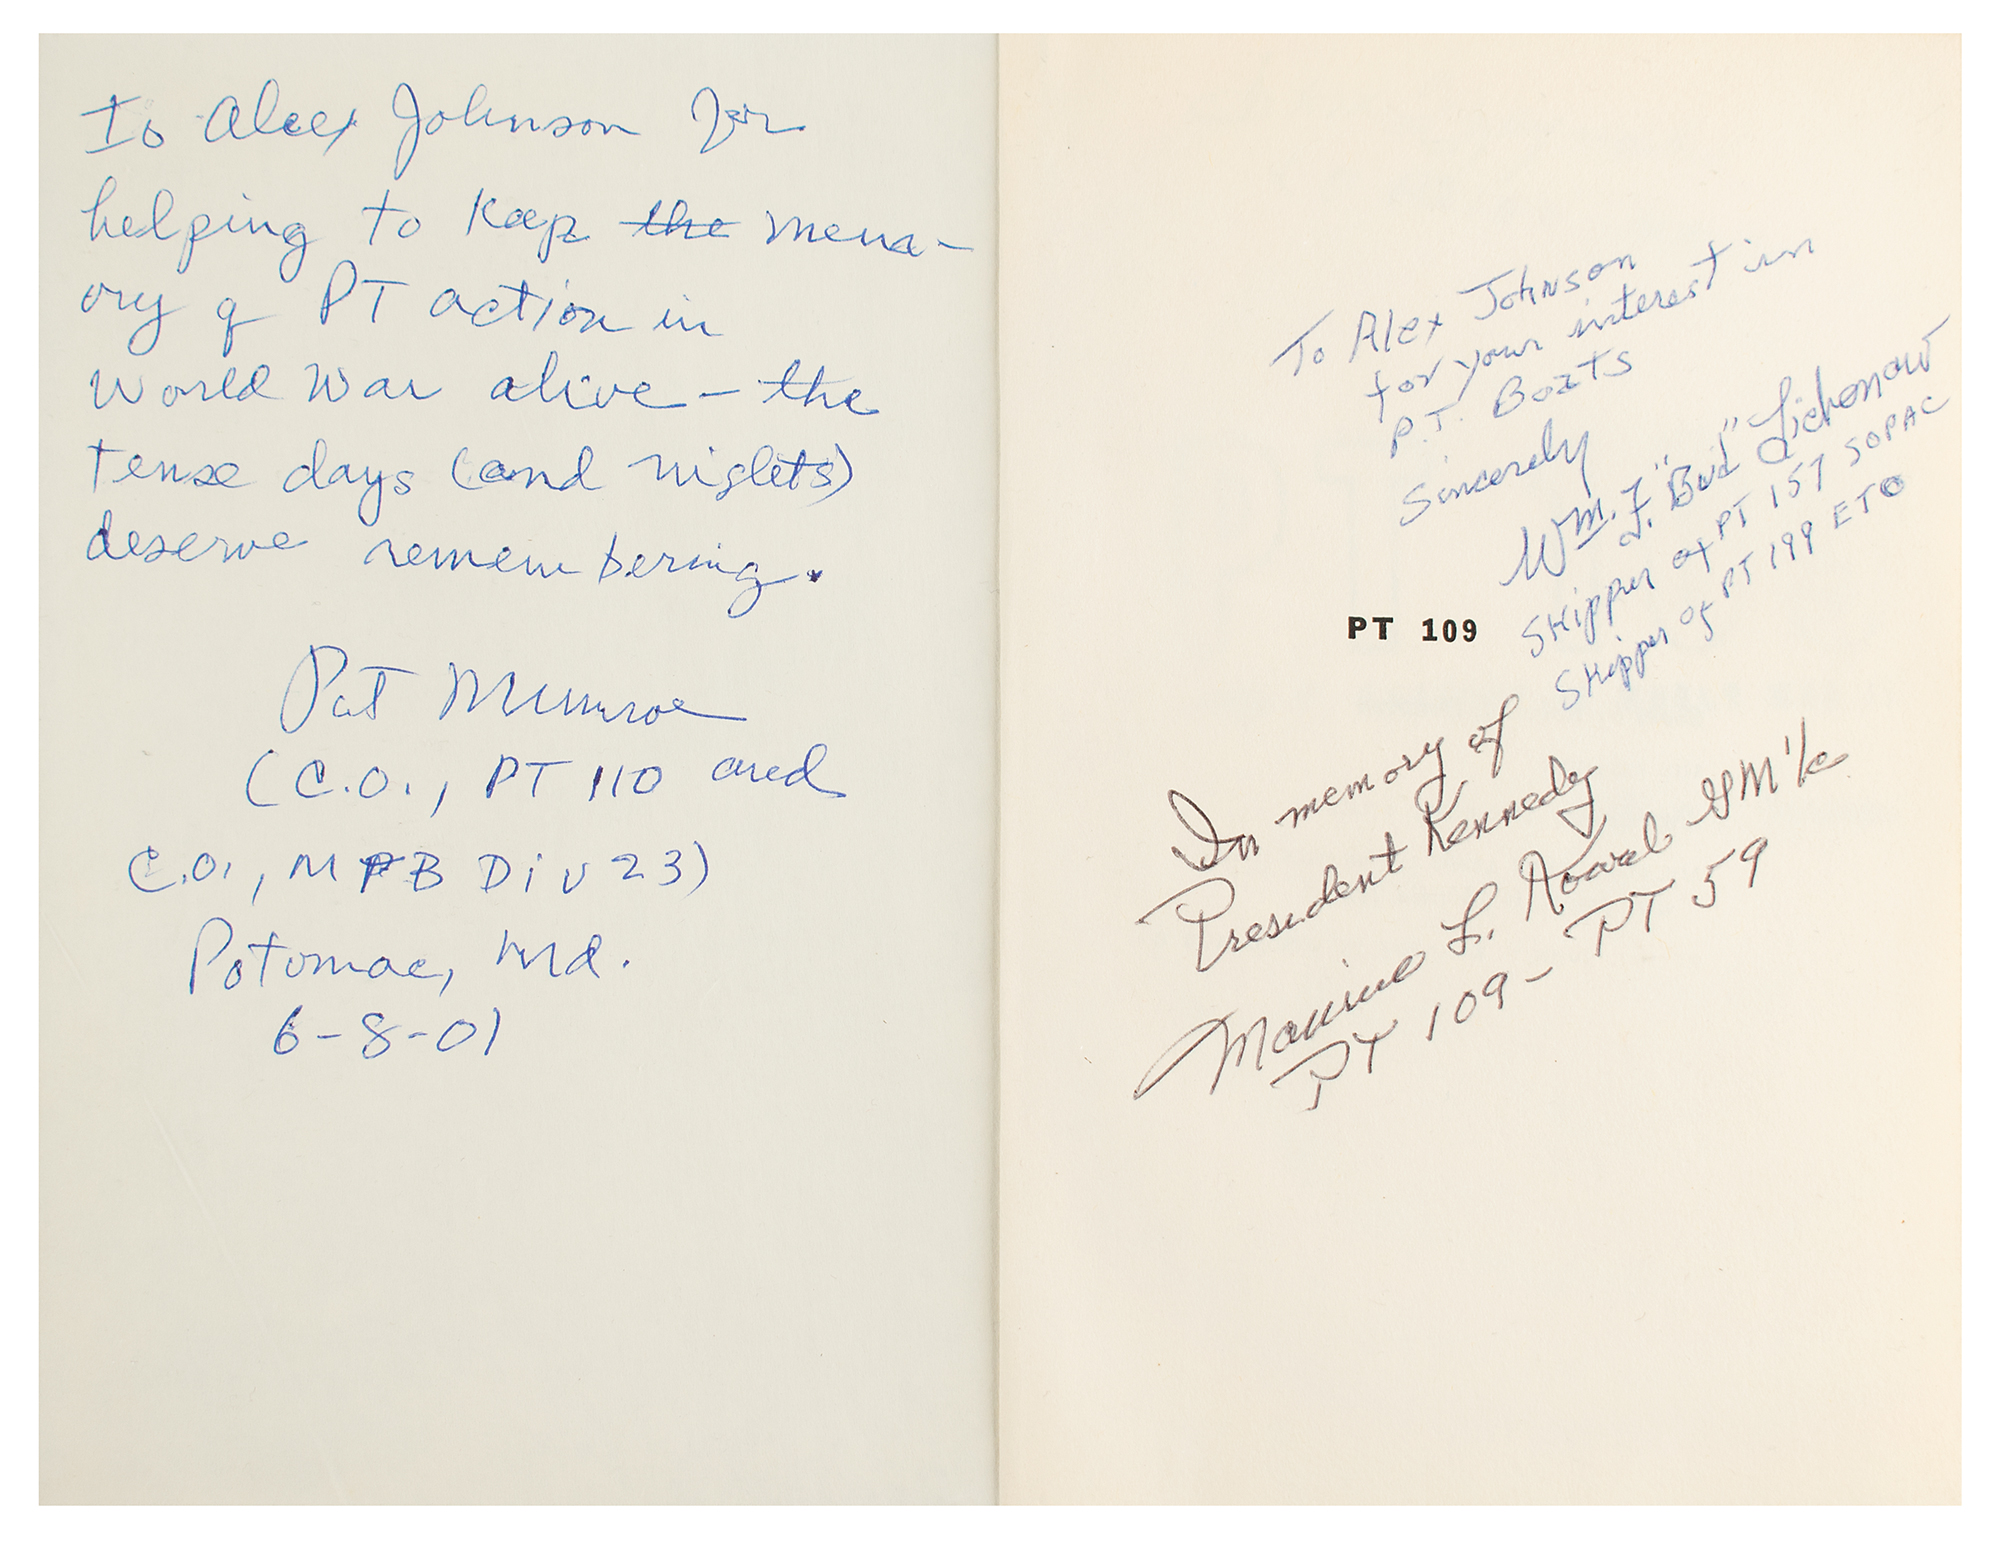 To Alex Johnson for
helping to keep the mem-
ory of PT action in
World War alive – the
tense days (and nights)
deserve remembering.
Pat Munroe
(C.O., PT 110 and
C.O., MTB Div 23)
Potomac, Md.
6-8-01
To Alex Johnson
for your interest in
P.T. Boats
Sincerely
Wm. F. "Bud" Liebenow
J.
Skipper of PT 157 SOPAC
Skipper of PT 199 ETO
PT 109
In memory of
President Kennedy
Maurice L. Kowal GM 1/c
PT 109 – PT 59